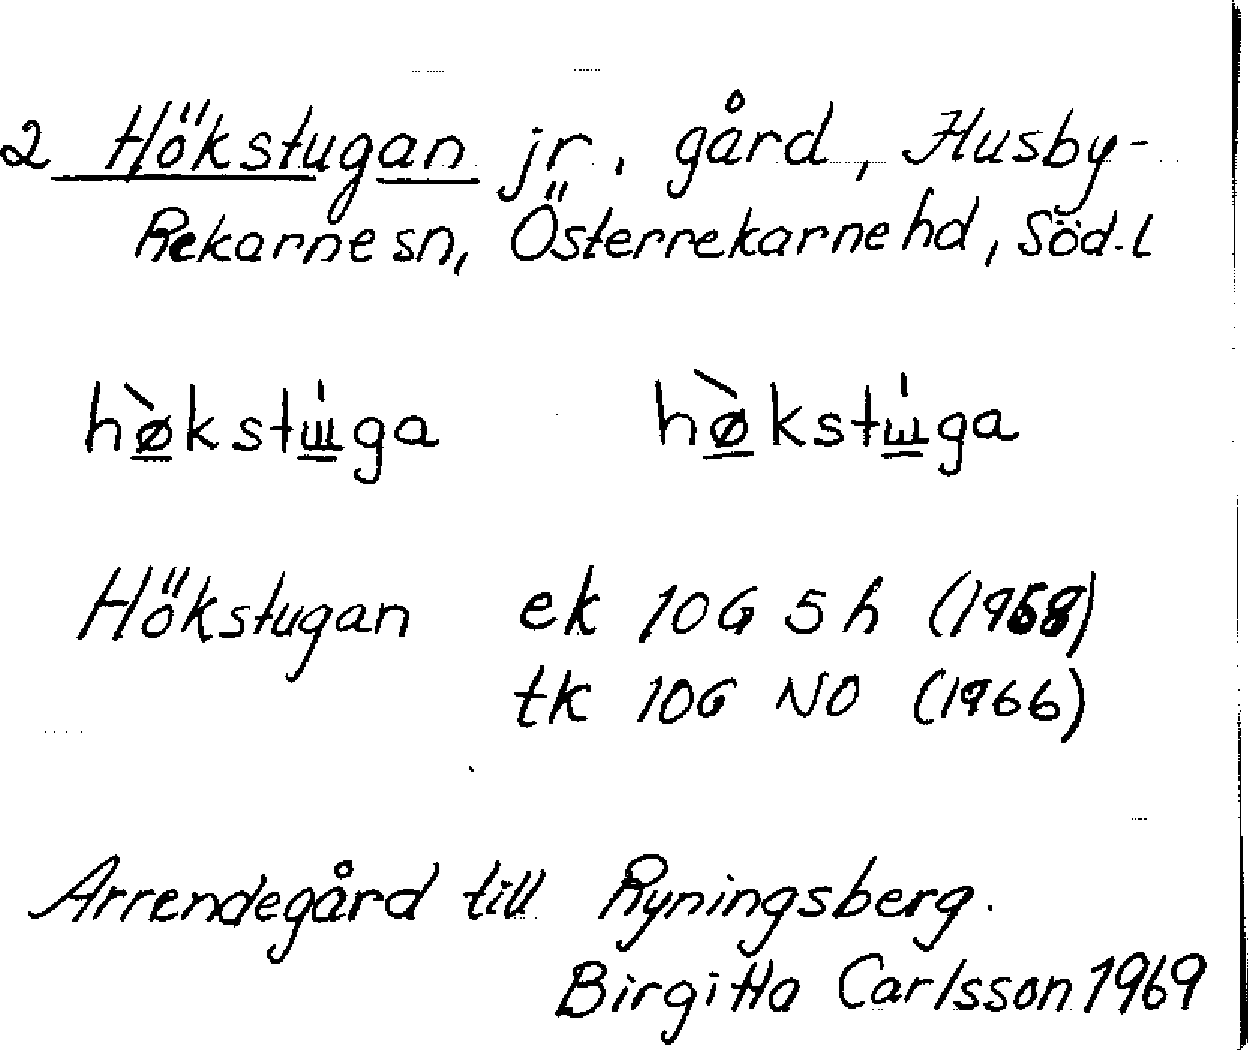 2 Hökstugan jr. gård, Husby-
Rekarne sn, Österrekarne hd, Söd.l
hø̀kstɯ̍ga hø̀kstɯ̍ga
Hökstugan ek 10G 5h (1958)
tk 10G NO (1966)
Arrendegård till Ryningsberg.
Birgitta Carlsson 1969